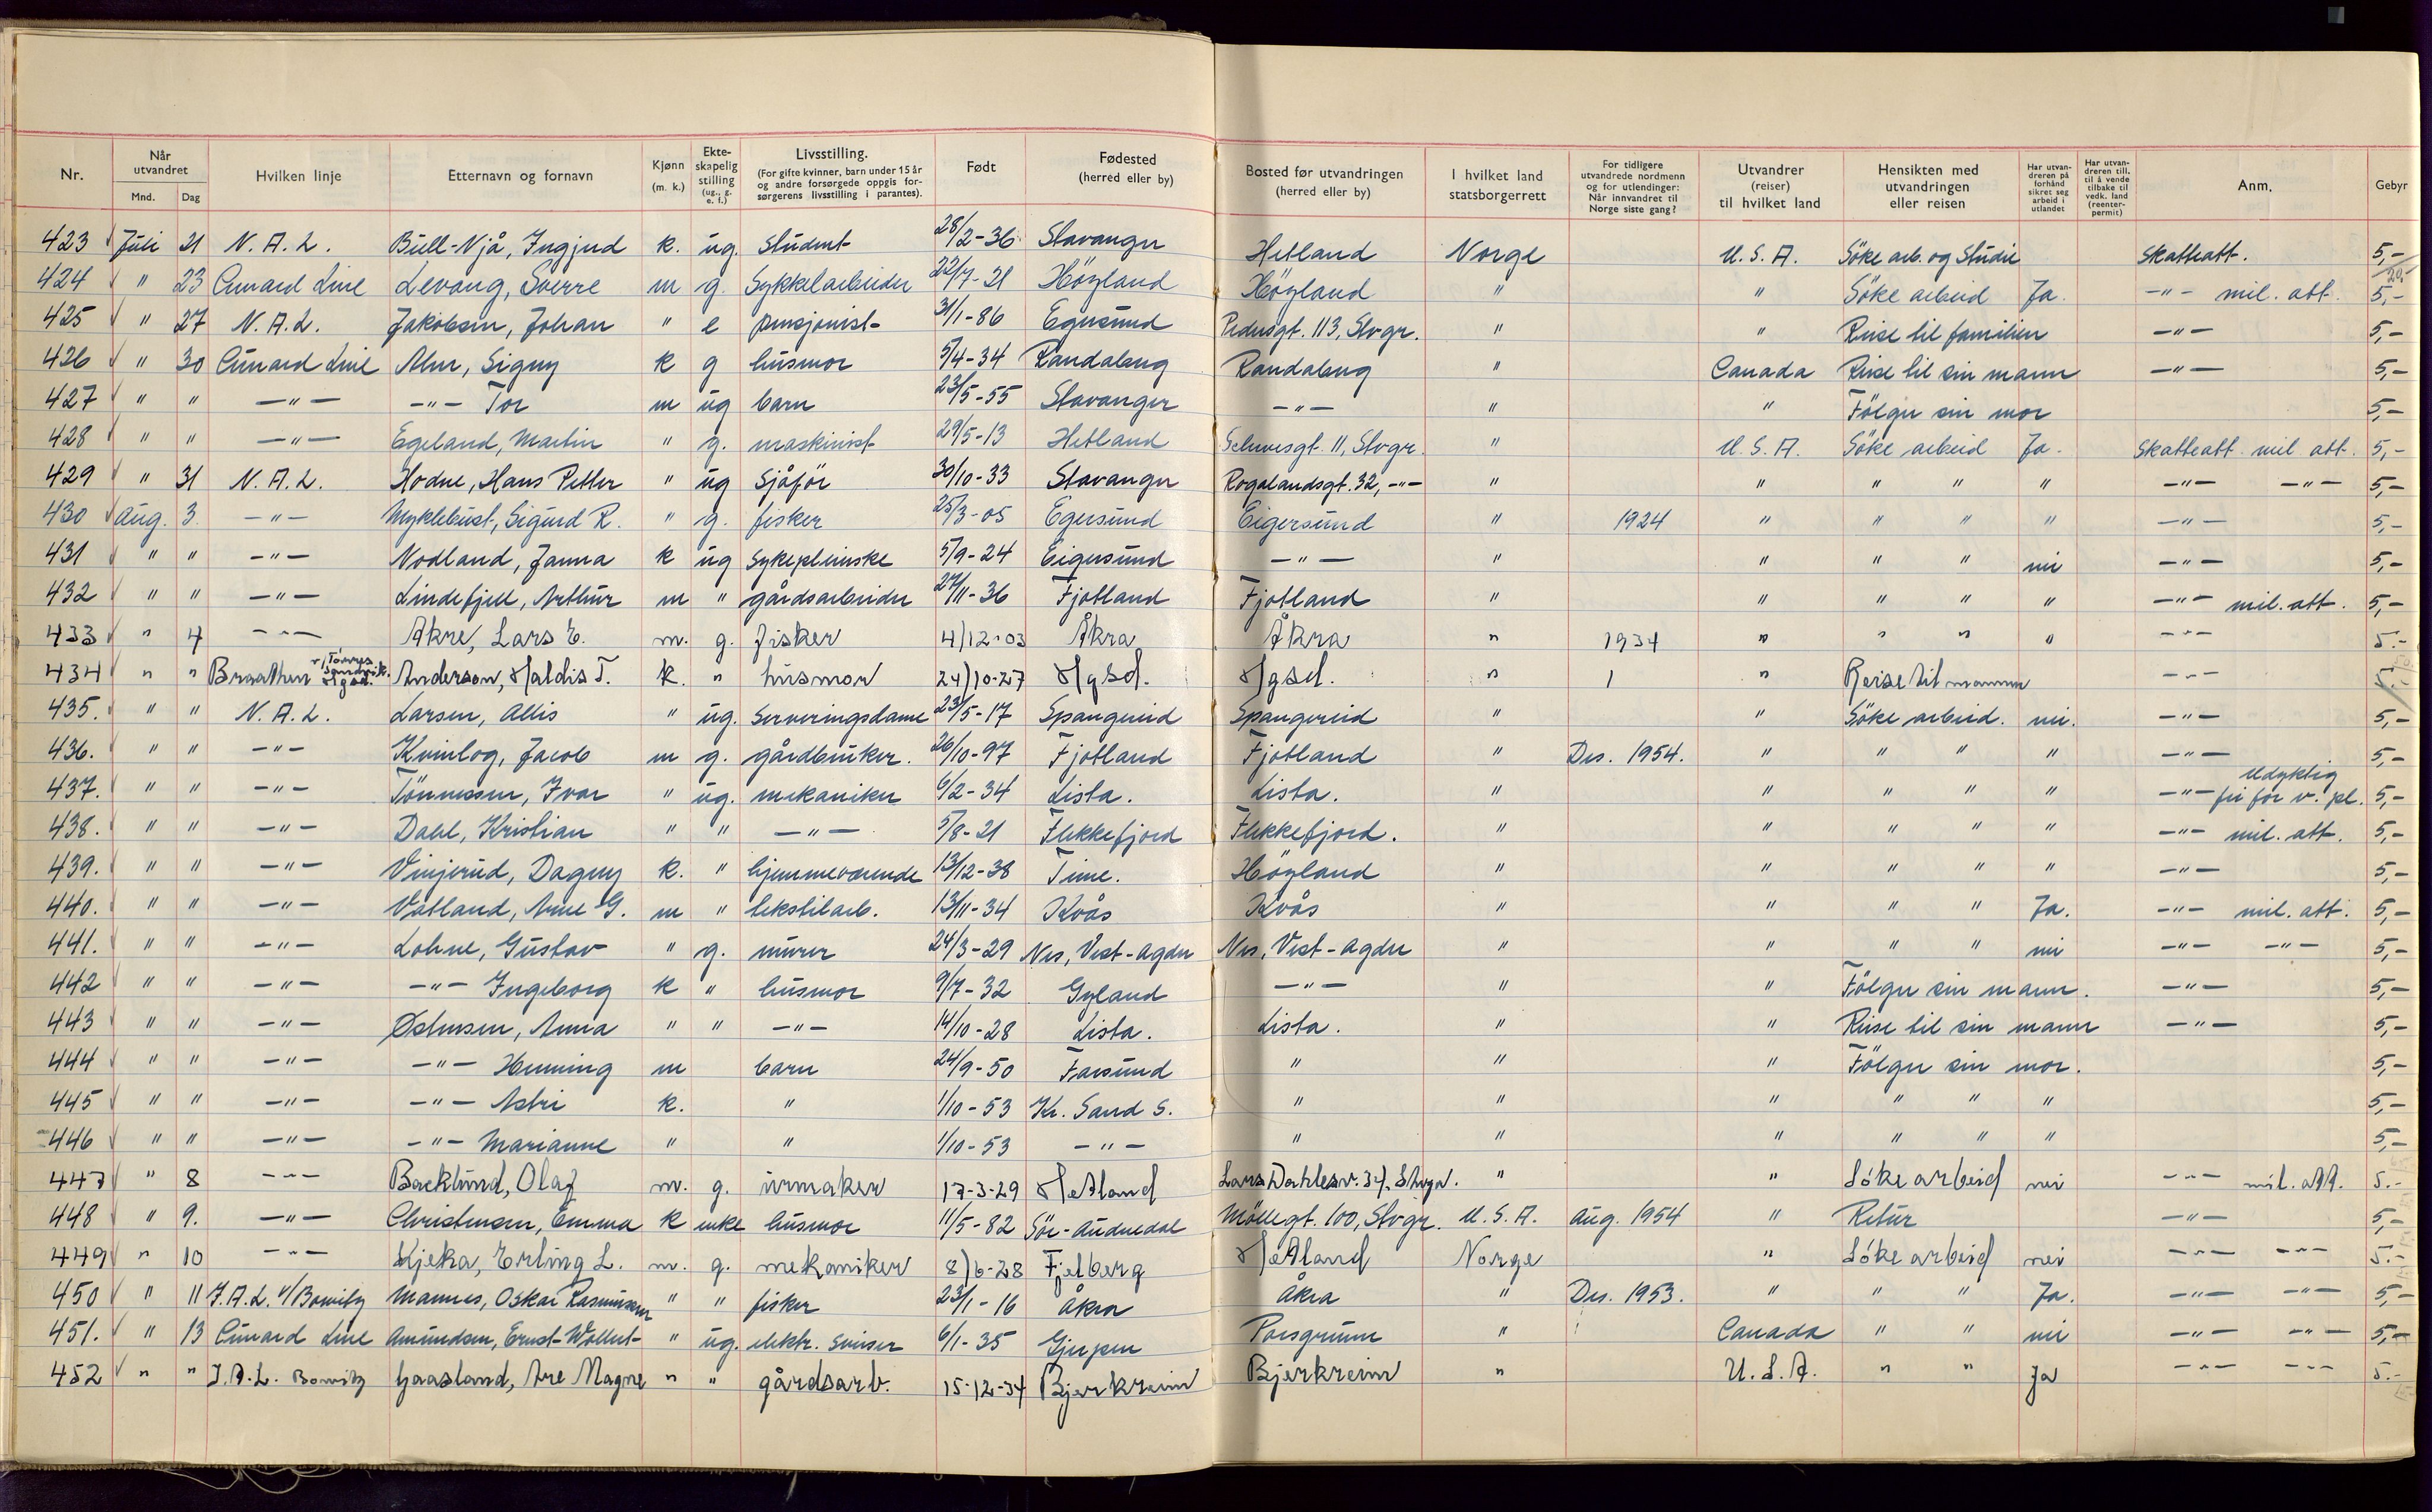 Nr. Når utvandret Mnd. Dag Hvilken linje Etternavn og fornavn Kjønn (m. k.) Ekteskapelig stilling (ug., g. e. f.) Livsstilling. (For gifte kvinner, barn under 15 år og andre forsørgede oppgis forsørgerens livsstilling i parantes). Født Fødested (herred eller by) Bosted før utvandringen (herred eller by) I hvilket land statsborgerrett For tidligere utvandrede nordmenn og for utlendinger: Når innvandret til Norge siste gang? Utvandrer (reiser) til hvilket land Hensikten med utvandringen eller reisen Har utvandreren på forhånd sikret seg arbeid i utlandet Har utvandreren till. til å vende tilbake til vedk. land (reenterpermit) Anm. Gebyr
423 Juli 21 N. A. L. Buell-Njå, Ingjerd k. ug. student 28/2-36 Stavanger Hetland Norge U. S. A. Söke arb. og Studie Skatteatt. 5,-
424 " 23 Cunard Line Levang, Sverre m g. Sykkelarbeider 22/7-21 Höyland Höyland " " Söke arbeid Ja. -"- mil. att. 5,-
425 " 27 N. A. L. Jakobsen, Johan " e pensjonist 31/1-86 Egersund Pedersgt. 113, Stvgr. " " Reise til familien -"- 5,-
426 " 30 Cunard Line Alner, Signy k g husmor 5/4-34 Randaberg Randaberg " Canada Reise til sin mann -"- 5,-
427 " " -"- -"- Tor m ug barn 23/5-55 Stavanger -"- " " Fölger sin mor 5,-
428 " " -"- Egeland, Martin " g. maskinist 29/5-13 Hetland Sehusgt. 11, Stvgr. " U. S. A. Söke arbeid Ja. Skatteatt. mil. att. 5,-
429 " 31 N. A. L. Hodne, Hans Petter " ug Sjåför 30/10-33 Stavanger Rogalandsgt. 32, -"- " " " " " -"- -"- 5,-
430 Aug. 3 -"- Myklebust, Sigurd R. " g. fisker 25/3-05 Egersund Eigersund " 1924 " " " " -"- 5,-
431 " " -"- Nodland, Janna k ug Sykepleierske 5/9-24 Eigersund -"- " " " " nei -"- 5,-
432 " " -"- Lindefjell, Arthur m " gårdsarbeider 27/11-36 Fjotland Fjotland " " " " " -"- mil. att. 5,-
433 " 4 -"- Åkre, Lars E. m. g. fisker 4/12-03 Åkra Åkra " 1934 " " " " -"- 5.-
434 " " Braathen v/Torres Sandvik. Hgsd. Anderson, Haldis T. k. " husmor 24/10-27 Hgsd. Hgsd. " 1 " Reise til mannen -"- 5.-
435. " " N. A. L. Larsen, Allis " ug. Serveringsdame 23/5-17 Spangereid Spangereid " " Söke arbeid. nei. -"- 5,-
436. " " -"- Kvinlog, Jacob m g. gårdbruker. 26/10-97 Fjotland Fjotland " Des. 1954. " " " " -"- 5,-
437. " " -"- Tönnessen, Ivar " ug. mekaniker 6/2-34 Lista. Lista. " " " " " -"- Udyktig fri for v. pl. 5,-
438. " " -"- Dahl, Kristian " " -"- 5/8-21 Flekkefjord Flekkefjord. " " " " " -"- mil. att. 5,-
439. " " -"- Vinjerud, Dagny k. " hjemmeværende 13/12-38 Time. Höyland " " " " " -"- 5,-
440. " " -"- Vatland, Arne G. m " tekstilarb. 13/11-34 Kvås Kvås " " " " Ja. -"- mil. att. 5,-
441. " " -"- Lohne, Gustav " g. murer 24/3-29 Nes, Vest-Agder Nes, Vest-Agder " " " " nei -"- -"- 5,-
442 " " -"- -"- Ingeborg k " husmor 9/7-32 Gyland -"- " " Fölger sin mann. -"- 5,-
443 " " -"- Östensen, Anna " " -"- 14/10-28 Lista. Lista. " " Reise til sin mann -"- 5,-
444 " " -"- -"- Henning m barn 24/9-50 Farsund " " " Fölger sin mor. 5,-
445 " " -"- -"- Astri k. " 1/10-53 Kr. Sand S. " " " " " " 5,-
446 " " -"- -"- Marianne " " 1/10-53 -"- " " " " " " 5,-
447 " 8 -"- Backlund, Olaf m. g. urmaker 17-3-29 Hetland Lars Dahlesv. 34, Stvgr. " " Söke arbeid nei -"- mil. att. 5.-
448 " 9. -"- Christensen, Emma k enke husmor 11/5-82 Sör-Audnedal Möllegt. 100, Stvgr. U. S. A. Aug. 1954 " Retur -"- 5,-
449 " 10 -"- Kjeka, Erling L. m. g. mekaniker 8/6-28 Fjelberg Hetland Norge " Söke arbeid nei -"- -"- 5.-
450 " 11 J. A. L. v/Bowitz Mannes, Oskar Rasmussen " " fisker 23/1-16 Åkra Åkra " Des. 1953. " " " Ja. -"- -"- 5,-
451. " 13 Cunard Line Amundsen, Ernst " ug. elektr. sveiser 6/1-35 Gjerpen Porsgrunn " Canada " " nei -"- -"- 5,-
452 " " J. A. L. Bowitz Gaasland, Are Magne " " gårdsarb. 15-12-34 Bjerkreim Bjerkreim " U. S. A. " " Ja -"- -"- 5.-